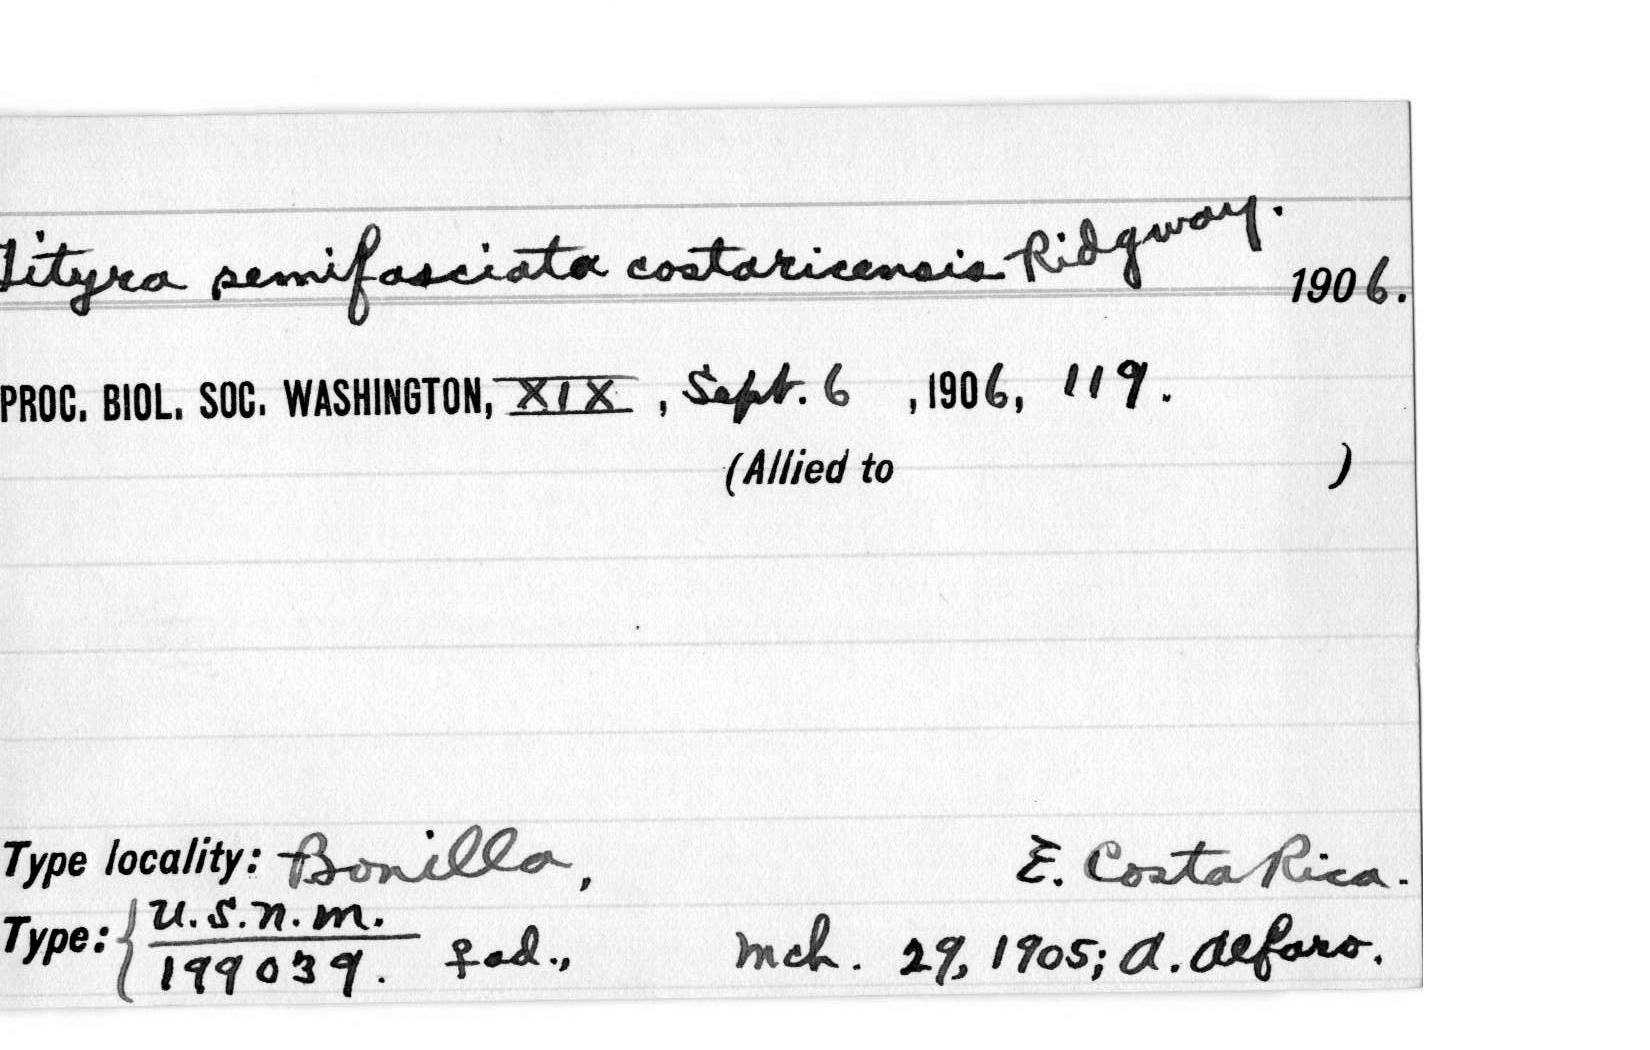 Tityra semifasciata costaricensis Ridgway.
1906.
PROC. BIOL. SOC. WASHINGTON, XIX, Sept. 6, 1906, 119.
(Allied to )
Type locality: Bonilla, E. Costa Rica.
Type: { U.S.N.M.
199039. ♀ ad., Mch. 29, 1905; A. Alfaro.